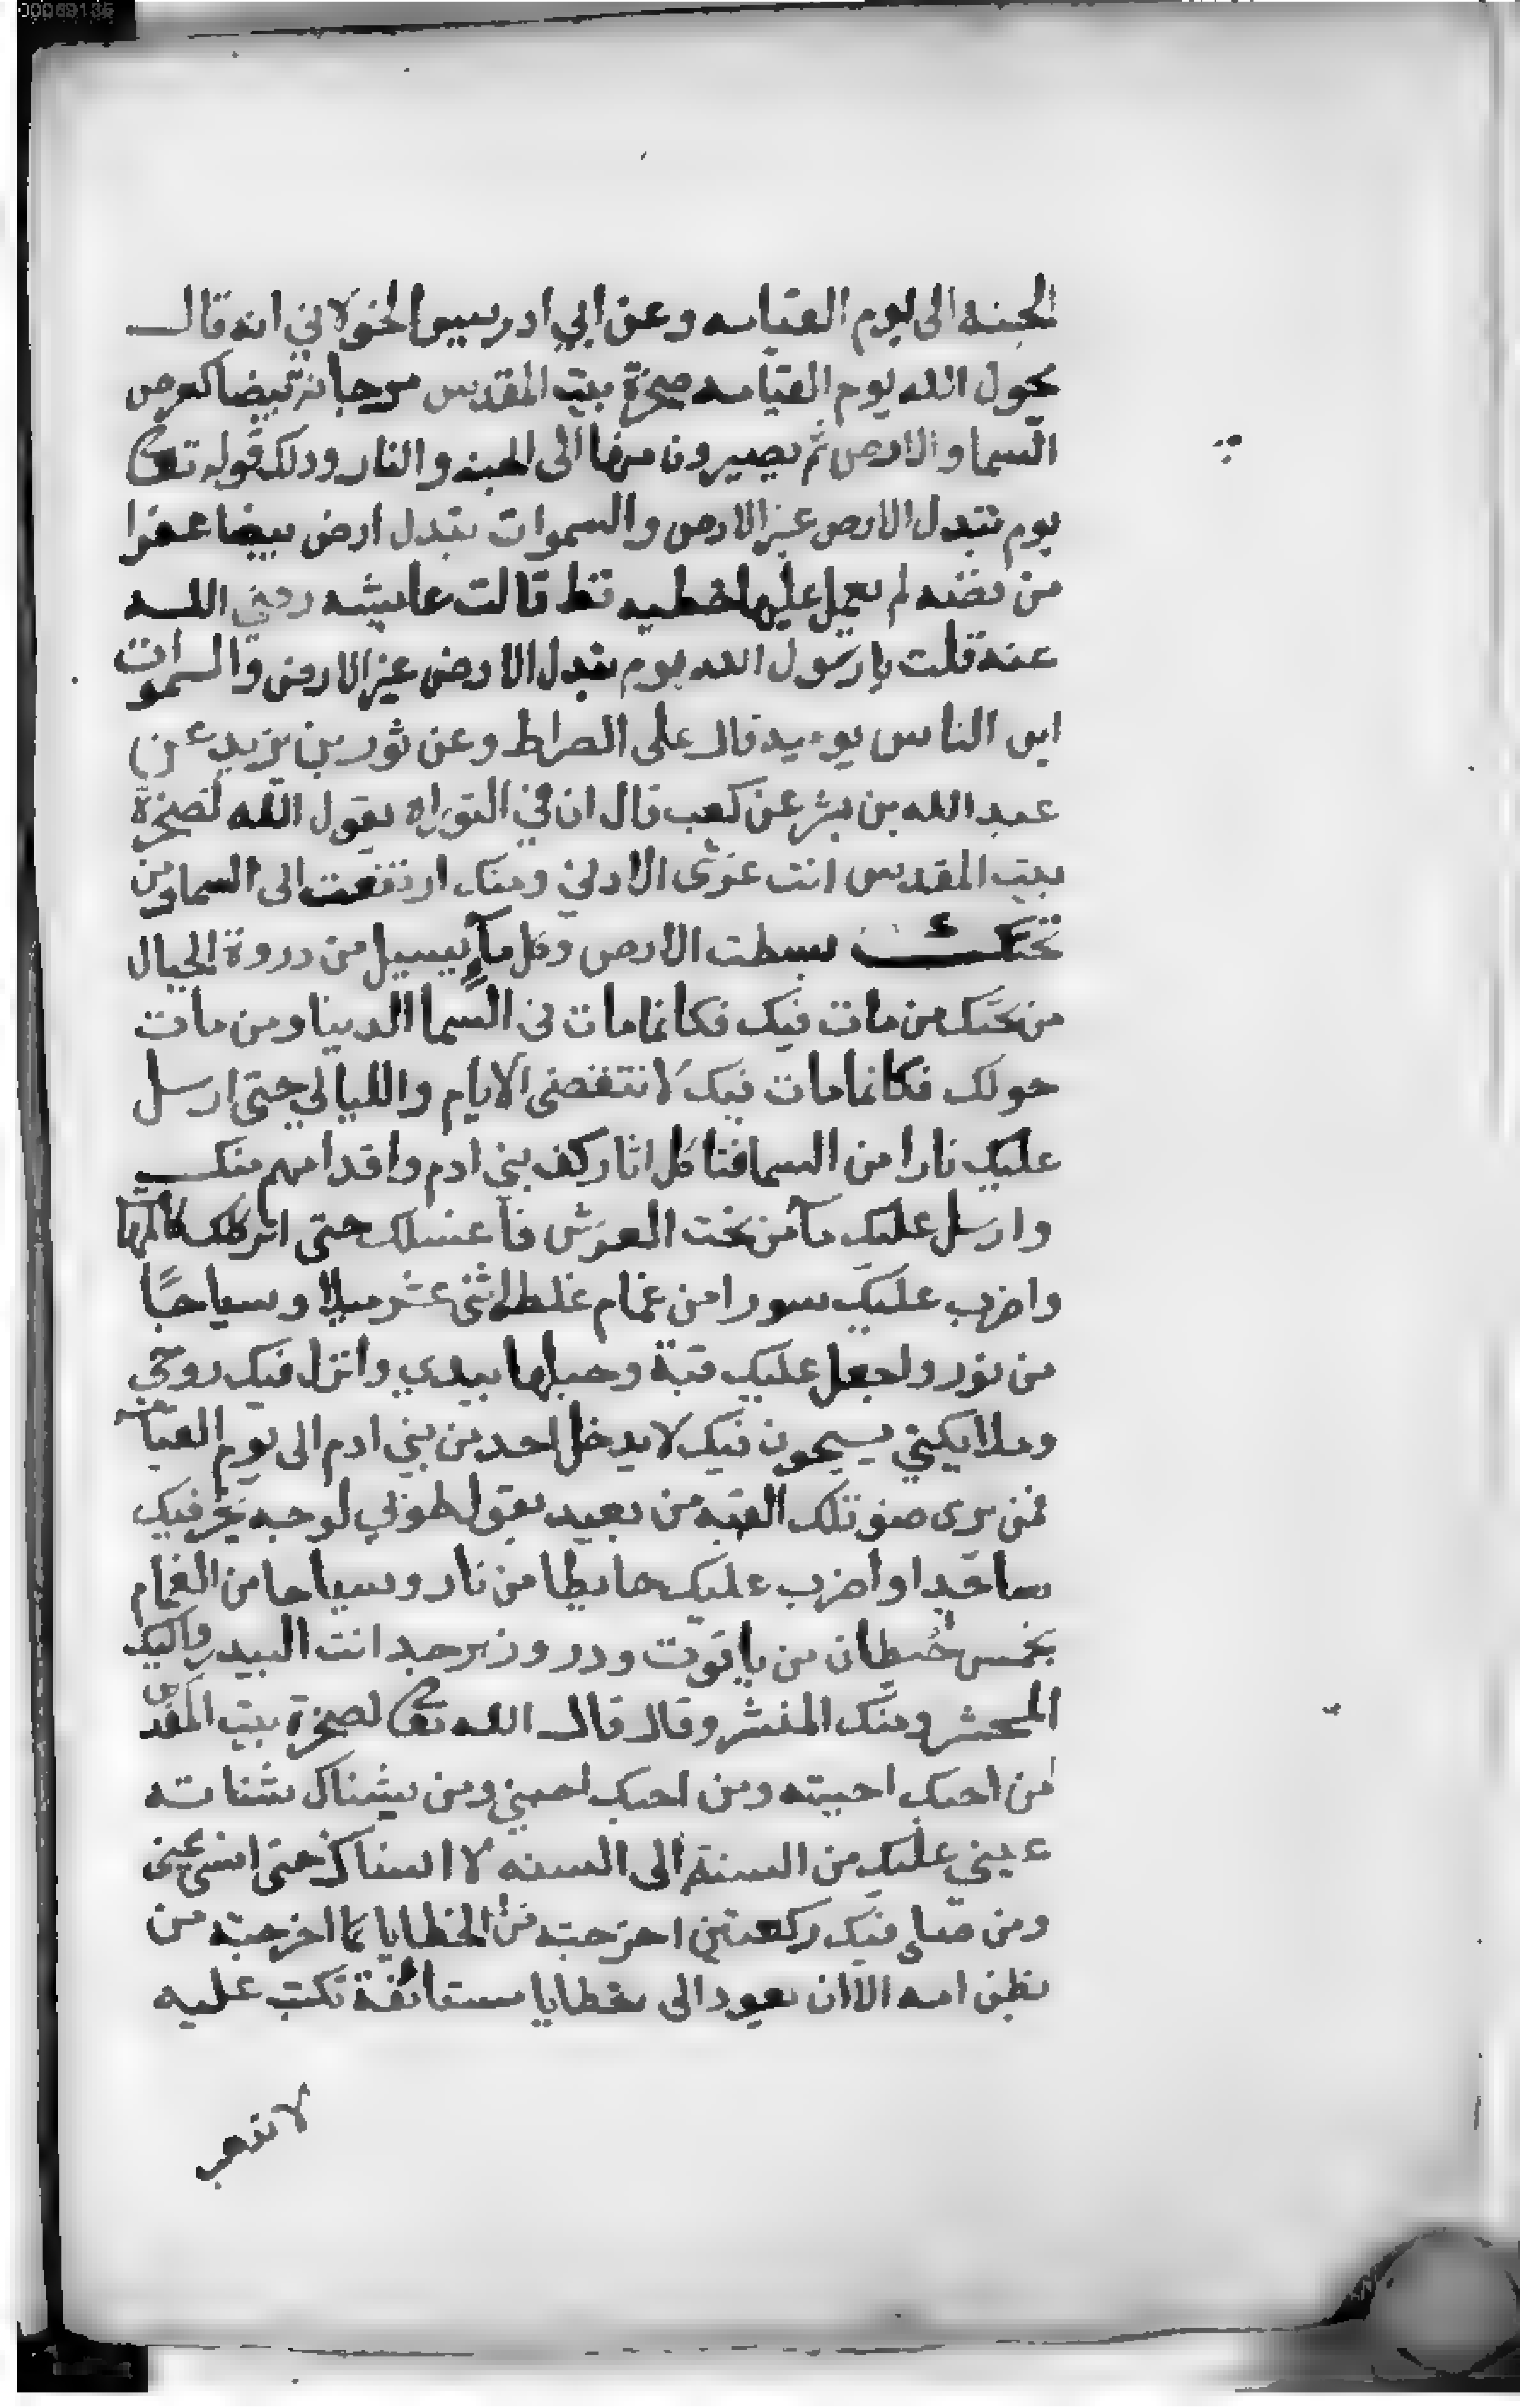 00069135
الجنه الى يوم القيامه وعن ابي ادريس الخولاني انه قال
يحول الله يوم القيامه صخرة بيت المقدس مرجانة بيضا كعرض
السما والارض ثم يصيرون منها الى الجنه والنار ودلك قوله تعالى
يوم تبدل الارض غير الارض والسموات تبدل ارض بيضا عفرا
من فضه لم يعمل عليها خطيه قط قالت عايشه رضي الله
عنه قلت يا رسول الله يوم تبدل الارض غير الارض والسموات
اين الناس يوميد قال على الصراط وعن ثور بن يزيد عن
عبد الله بن بشر عن كعب قال ان في التوراه يقول الله لصخرة
بيت المقدس انت عرشى الادنى ومنك ارتفعت الى السما ومن
تحتك بسطت الارض وكل مآء يسيل من دروة الجبال
من تحتك من مات فيك فكانما مات في السما الدنيا ومن مات
حولك فكانما مات فيك لا تنقضى الايام والليالي حتى ارسل
عليك نارا من السما فتاكل اثار كف بني ادم واقدامهم منك
وارسل عليك مآ من تحت العرش فاغسلك حتى اتركك كالمها
واضرب عليك سورا من غمام غلظه اثنى عشر ميلا وسياجًا
من نور واجعل عليك قبة وجبلها بيدي وانزل فيك روحي
وملايكتي يسبحون فيك لا يدخل احد من بني ادم الى يوم القيا
فمن يرى ضو تلك القبه من بعيد يقول طوبي لوجه يخر فيك
ساجدا واضرب عليك حايطا من نار وسياجا من الغمام
بخمس حيطان من ياقوت ودر وزبرجد انت البيدر واليك
المحشر ومنك المنشر وقال قال الله تعالى لصخرة بيت المقدس
من احبك احببته ومن احبك احبني ومن يشناك شناته
عيني عليك من السنة الى السنه لا انساك حتى انسى عينى
ومن صلى فيك ركعتين اخرجته من الخطايا كما اخرجته من
بطن امه الا ان يعود الى خطايا مستانفة تكتب عليه